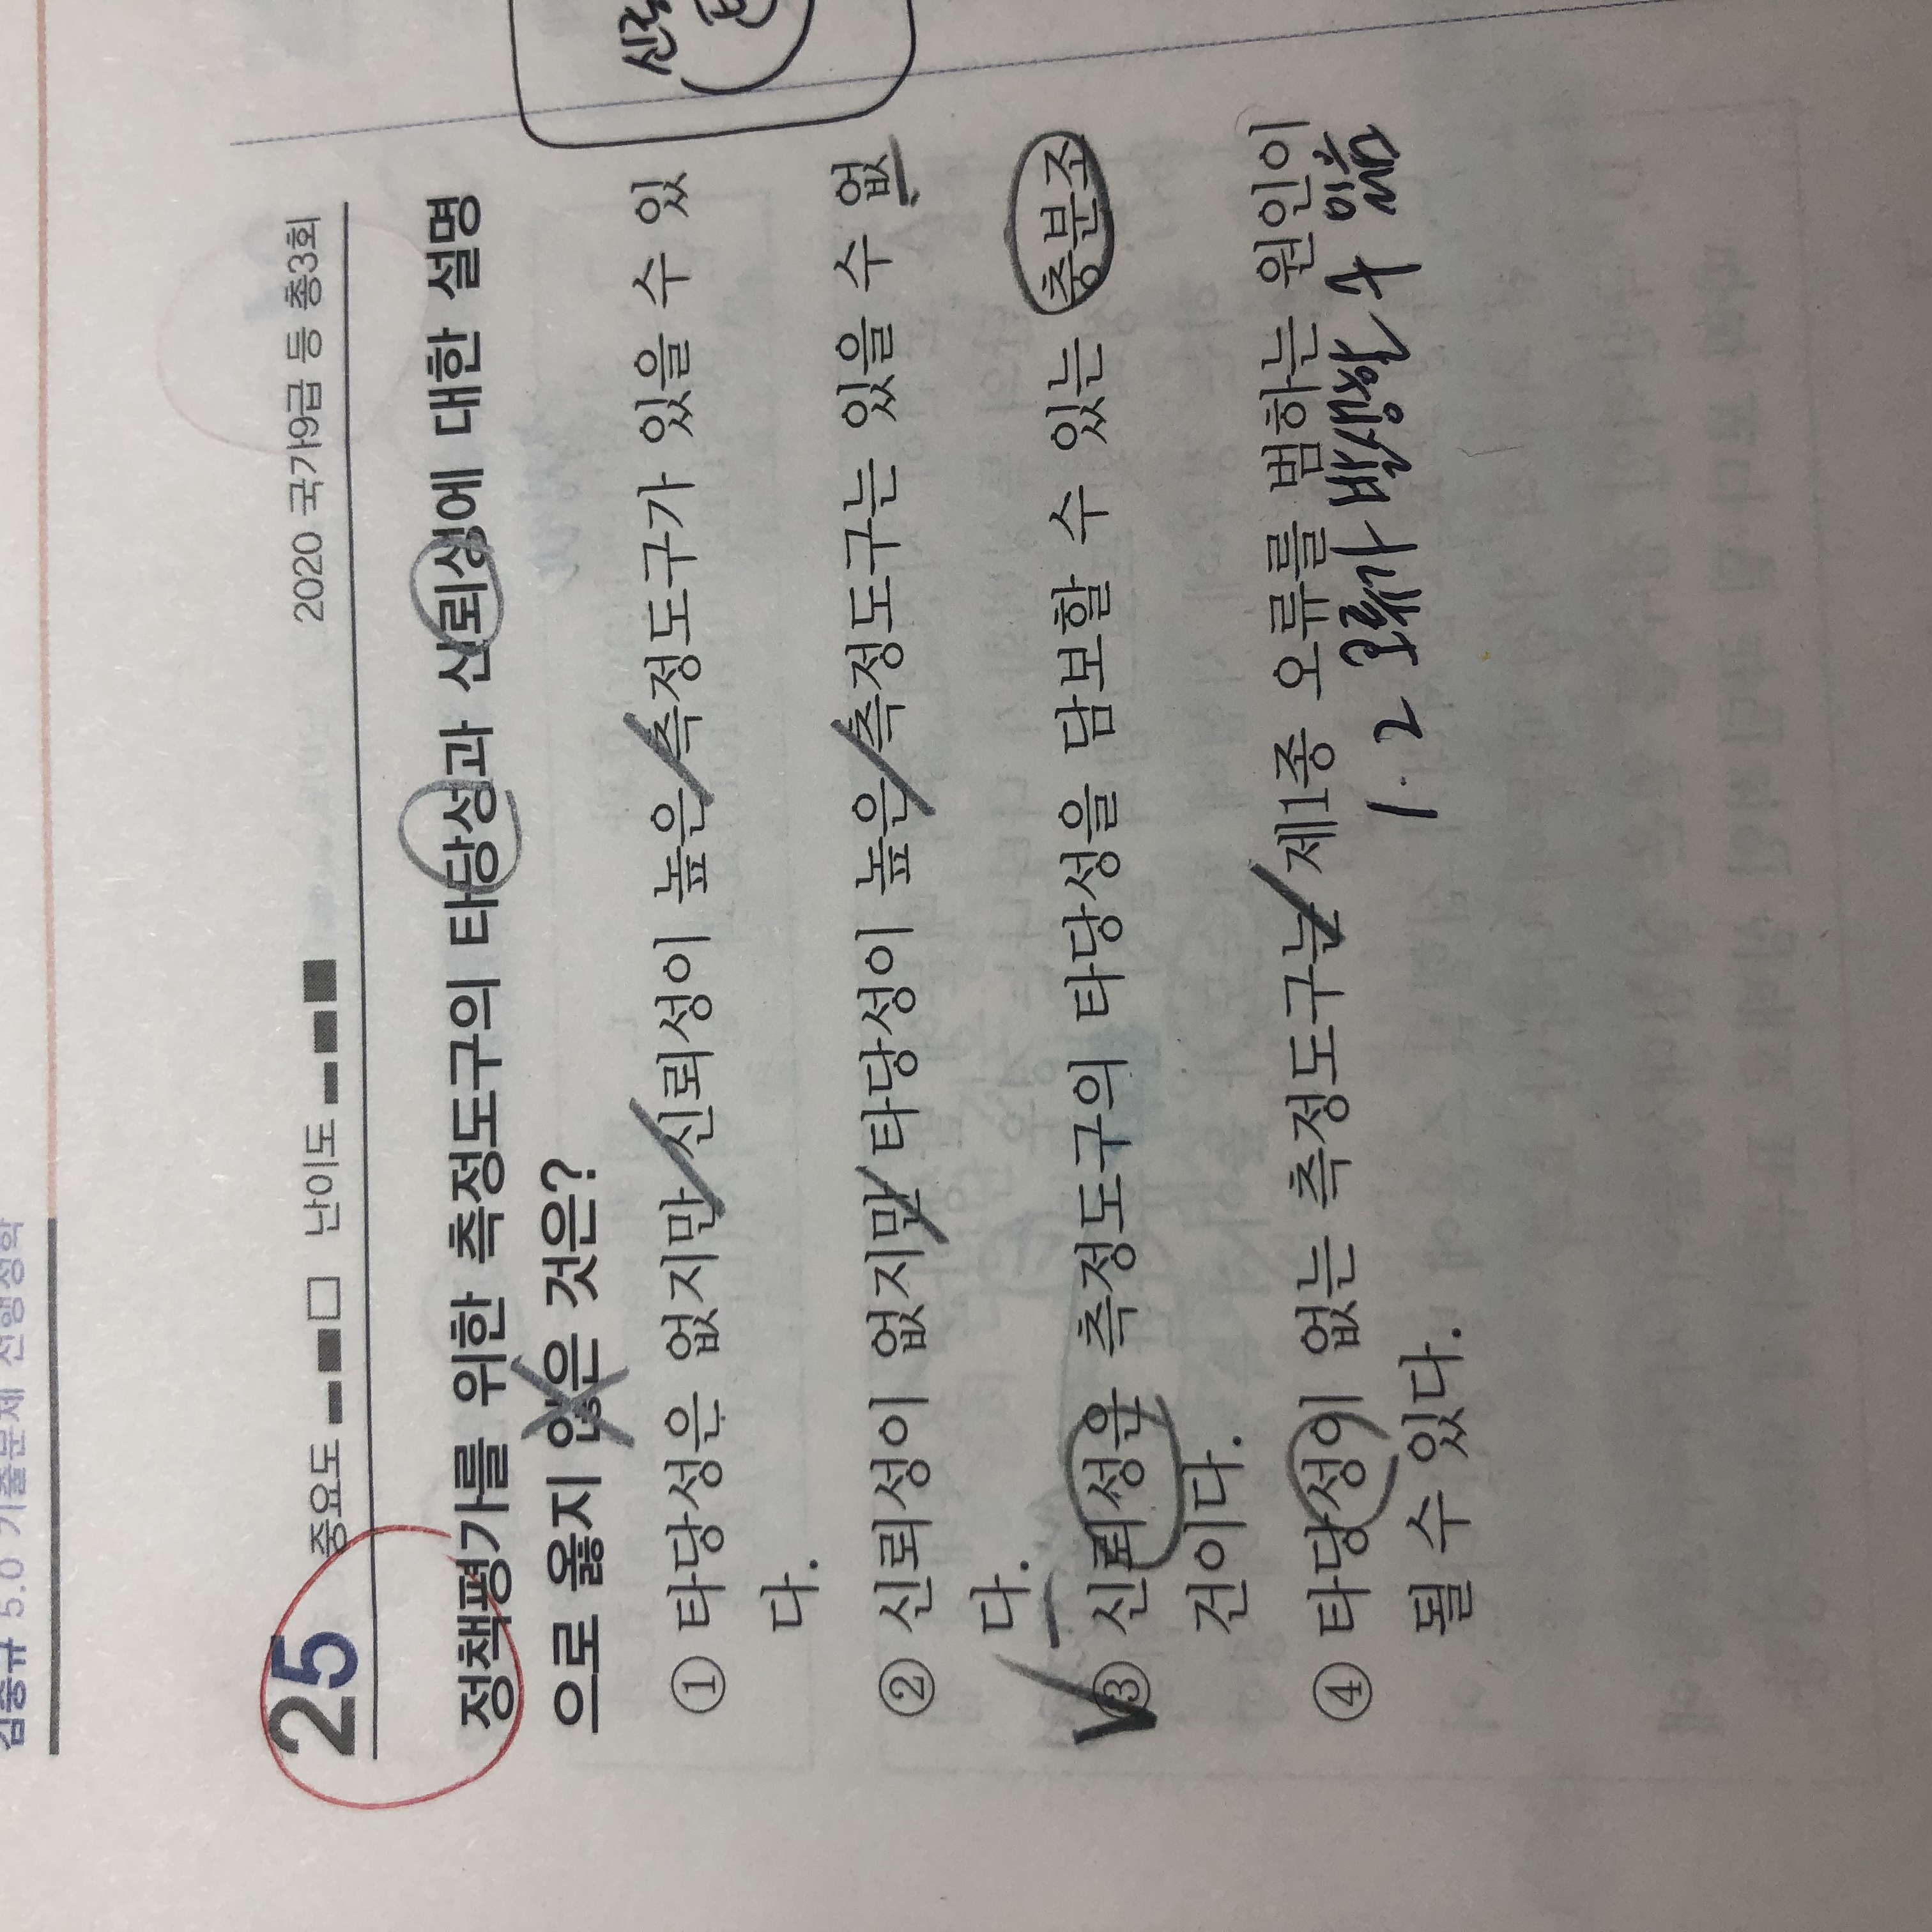 김중규 5.0 기출문제 선행정학
25 중요도 난이도 2020 국가9급 등 총3회
정책평가를 위한 측정도구의 타당성과 신뢰성에 대한 설명
으로 옳지 않은 것은?
① 타당성은 없지만 신뢰성이 높은 측정도구가 있을 수 있
다.
② 신뢰성이 없지만 타당성이 높은 측정도구는 있을 수 없
다.
③ 신뢰성은 측정도구의 타당성을 담보할 수 있는 충분조
건이다.
④ 타당성이 없는 측정도구는 제1종 오류를 범하는 원인이
될 수 있다.
1. 2 오류가 발생할 수 있음